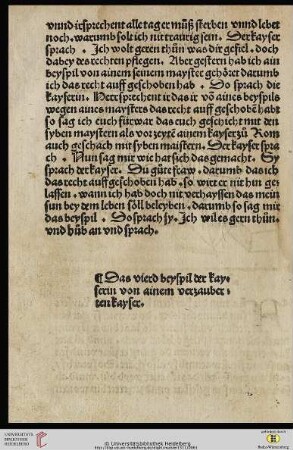 vnnd ir sprechent alle tag er můß sterben vnnd lebet
noch. warumb solt ich nit traurig sein. Der kayser
sprach. Ich wolt geren thůn was dir gefiel. doch
dabey des rechten pflegen. Aber gestern hab ich ain
beyspil von ainem seinem mayster gehöret darumb
ich das recht auff geschoben hab. Do sprach die
kayserin. Herr sprechent ir das ir vō aines beyspils
wegen aines maysters das recht auff geschobē habt
so sag ich euch für war das euch geschicht mit den
syben maystern als vor zeytē ainem kayser zů Rom
auch geschach mit syben maistern. Der kayser spra
ch. Nun sag mir wie hat sich das gemacht. Sy
sprach der kayser. Du gůte fraw. darumb das ich
das recht auff geschoben hab. so wirt er nit hin ge
lassen. wann ich hab doch nit verhayssen das mein
sun bey dem leben söll beleyben. darumb so sag mir
das beyspil. Do sprach sy. Ich wil es gern thůn.
vnd hůb an vnd sprach.
¶ Das vierd beyspil der kay-
serin von ainem verzauber-
ten kayser.
UNIVERSITÄTS-
BIBLIOTHEK
HEIDELBERG
© Universitätsbibliothek Heidelberg
Baden-Württemberg